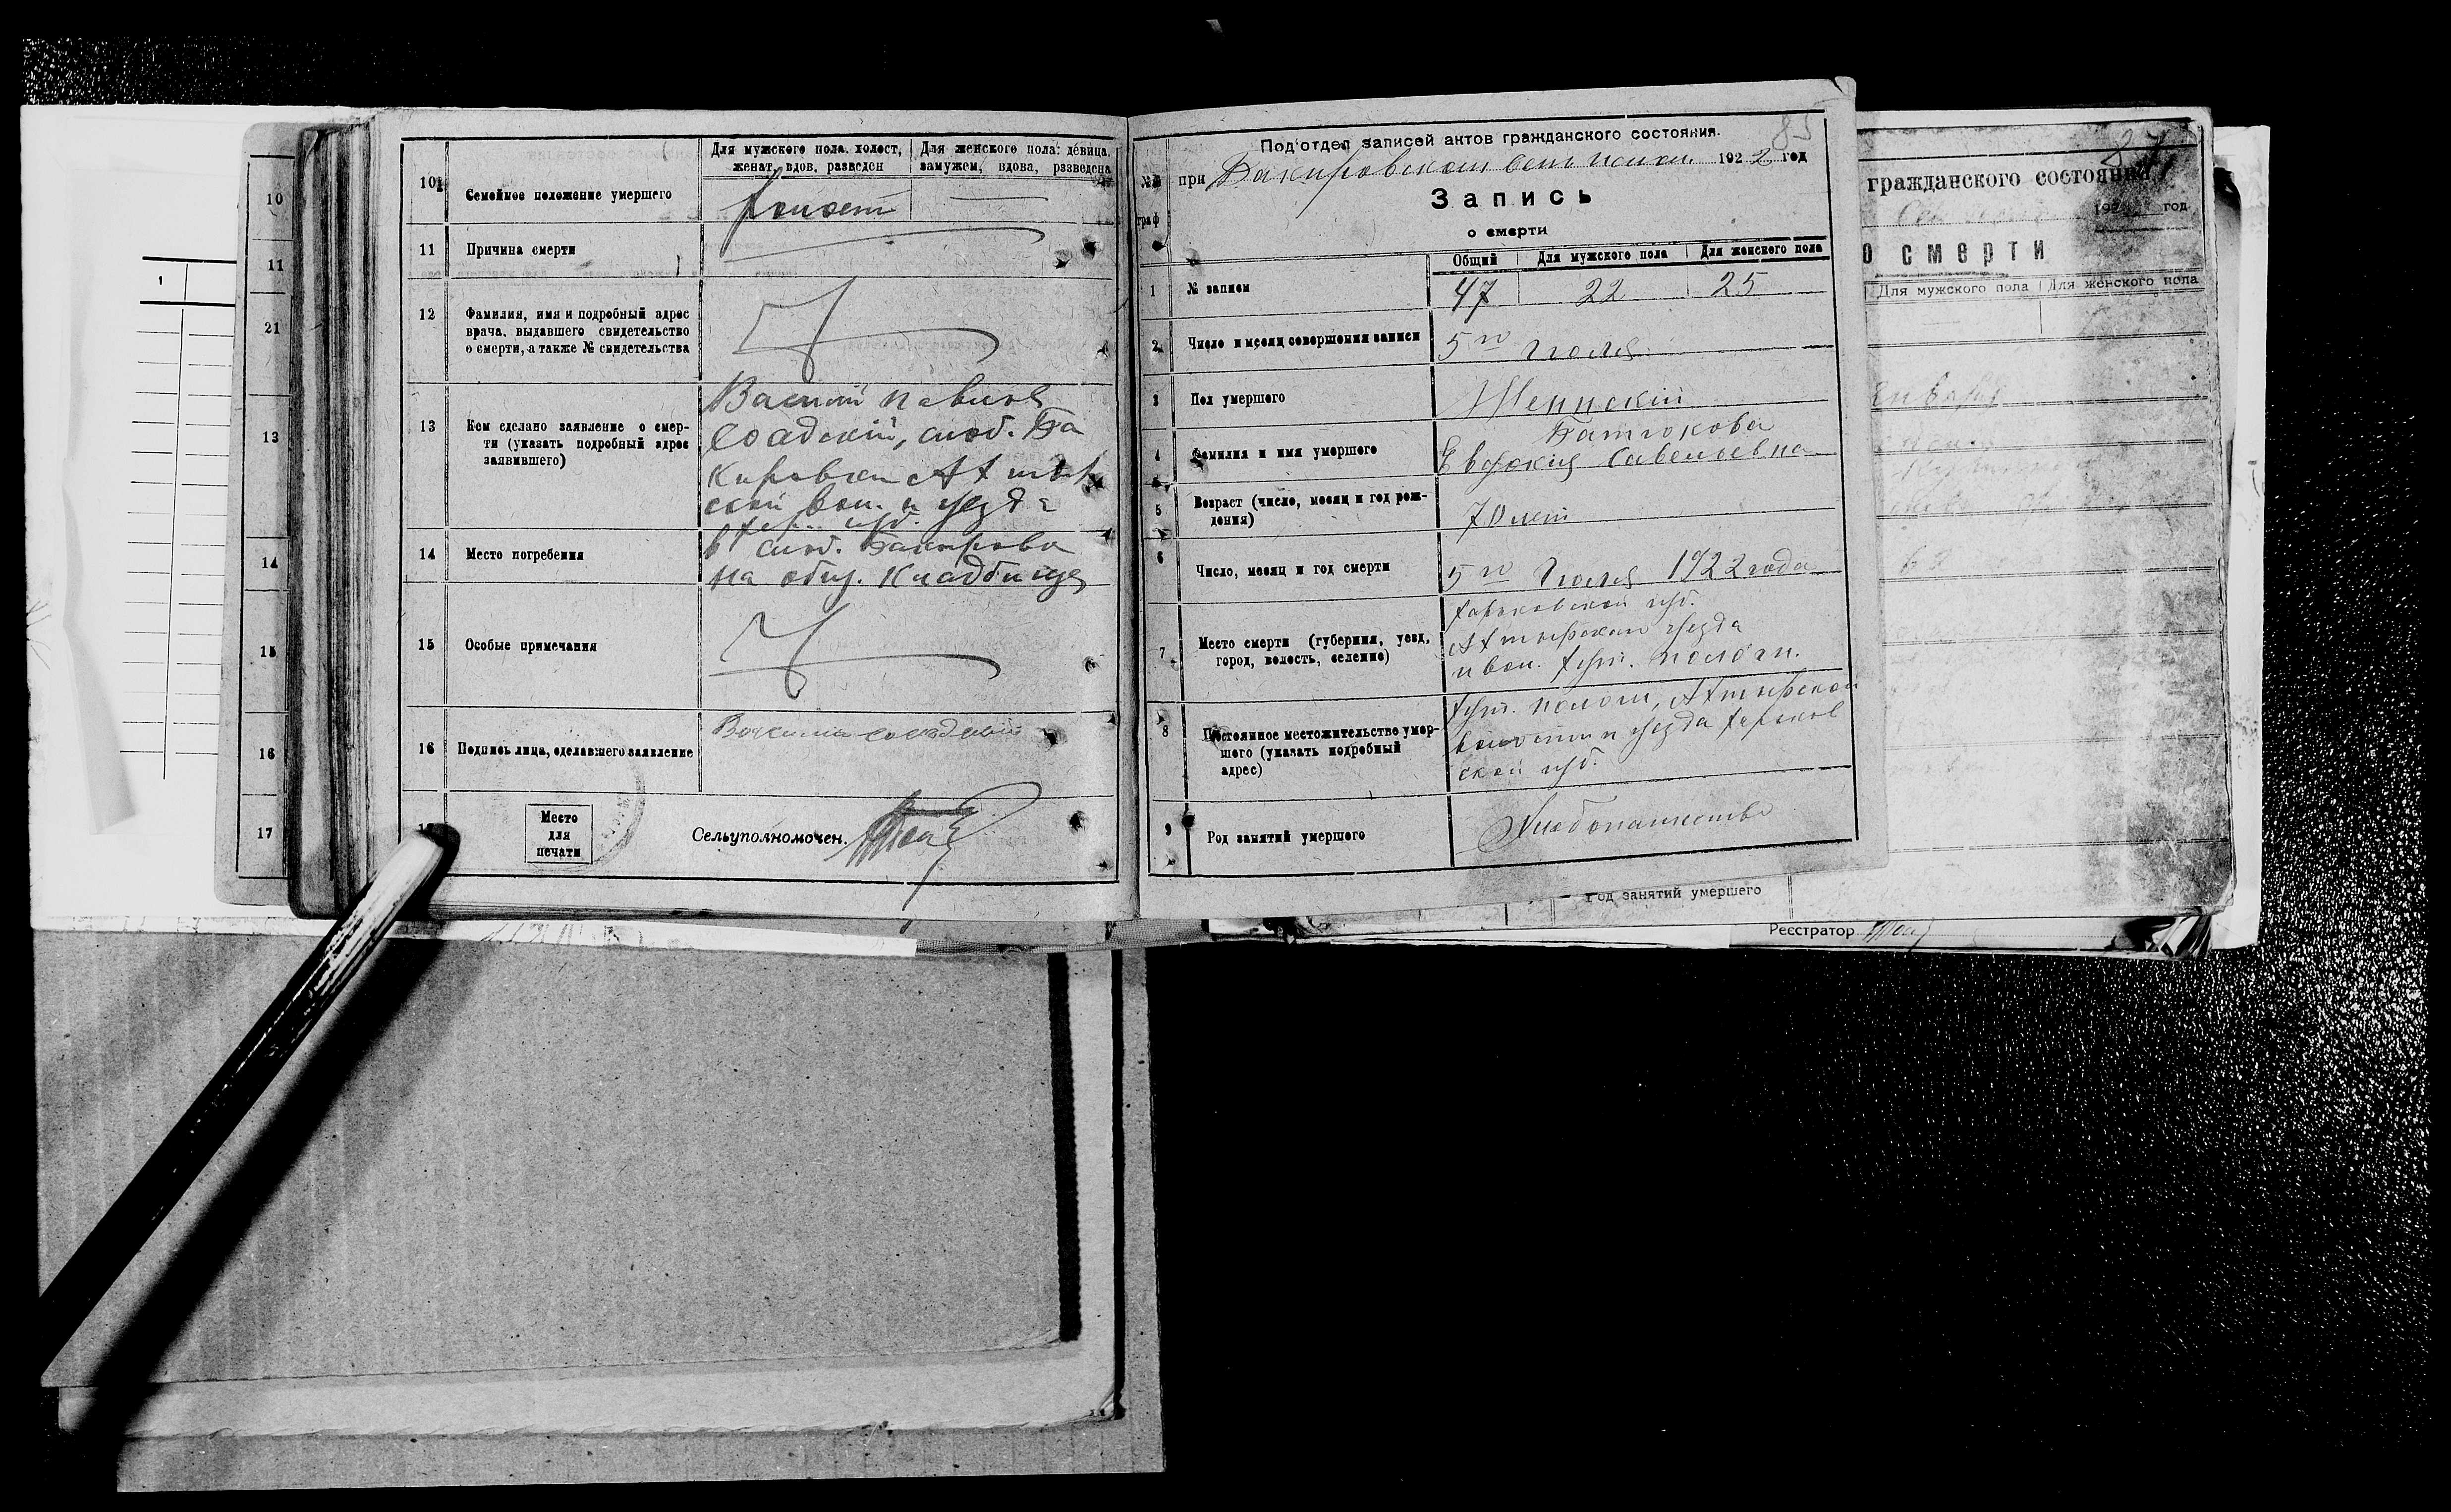 10
11
21
13
14
15
16
17
1
Для мужского пола. холост,
женат, вдов, разведен
Для женского пола: девица,
замужем, вдова, разведена
10
Семейное положение умершего
Холост
11
Причина смерти
12
Фамилия, имя и подробный адрес
врача, выдавшего свидетельство
о смерти, а также № свидетельства
13
Кем сделано заявление о смер-
ти (указать подробный адрес
заявившего)
Василий Павлов
слоб. Ба
кировки Ахтыр
ской вол. и уезда
14
Место погребения
в слоб. Бакировка
на общ. кладбище
15
Особые примечания
16
Подпись лица, сделавшего заявление
Место
для
печати
Сельуполномочен.
85
Под'отдел записей актов гражданского состояния.
№№
граф
при Бакировском 1922 год
Запись
о смерти
Общий
Для мужского пола
Для женского пола
1
№ записи
47
22
25
2
Число и месяц совершения записи
5го Июля
3
Пол умершего
Женский
4
Фамилия и имя умершего
Батюкова
Евдокия Савельевна
5
Возраст (число, месяц и год рож-
дения)
70 лет
6
Число, месяц и год смерти
5го Июля 1922 года
7
Место смерти (губерния, уезд,
город, волость, селение)
Харьковской губ.
Ахтырского уезда
и вол. хут. Пологи.
8
Постоянное местожительство умер-
шего (указать подробный
адрес)
хут. Пологи, Ахтырской
волости и уезда Харьков
ской губ.
9
Род занятий умершего
Хлебопашество
87
гражданского состояния
192
год
о смерти
Для мужского пола
Для женского пола
Января
Род занятий умершего
Реєстратор